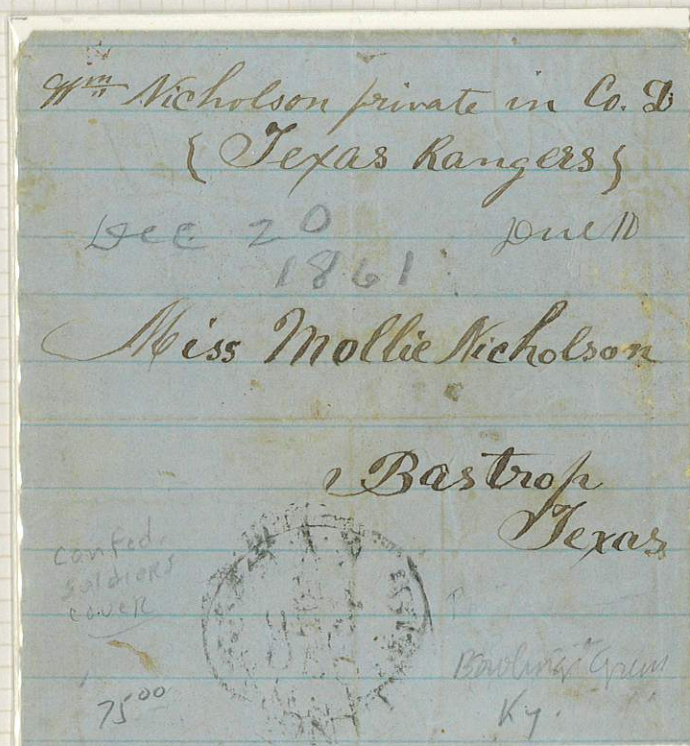 Wm Nicholson private in Co. D
{ Texas Rangers }
Dec 20 Due 10
1861
Miss Mollie Nicholson
Bastrop
Texas
Confed.
Soldiers
cover
75 00
Bowling Green
Ky.